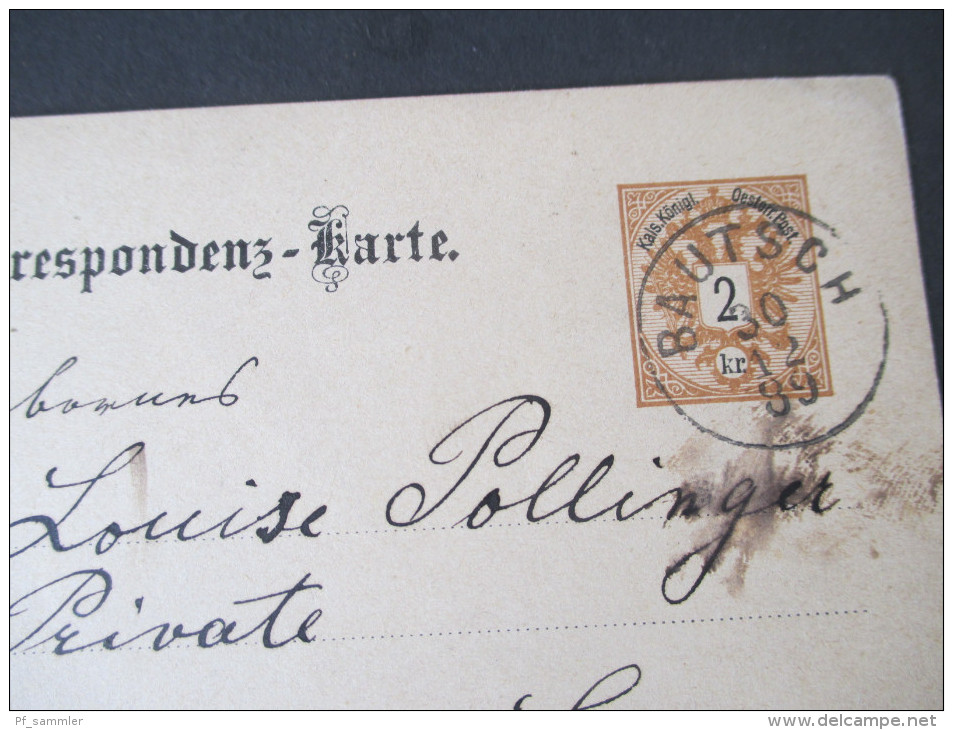 Kais. Königl. Oesterr. Post.
BAUTSCH
2
30
12
89
kr.
respondenz-Karte.
Louise Pollinger
Private
Pf_sammler www.delcampe.net